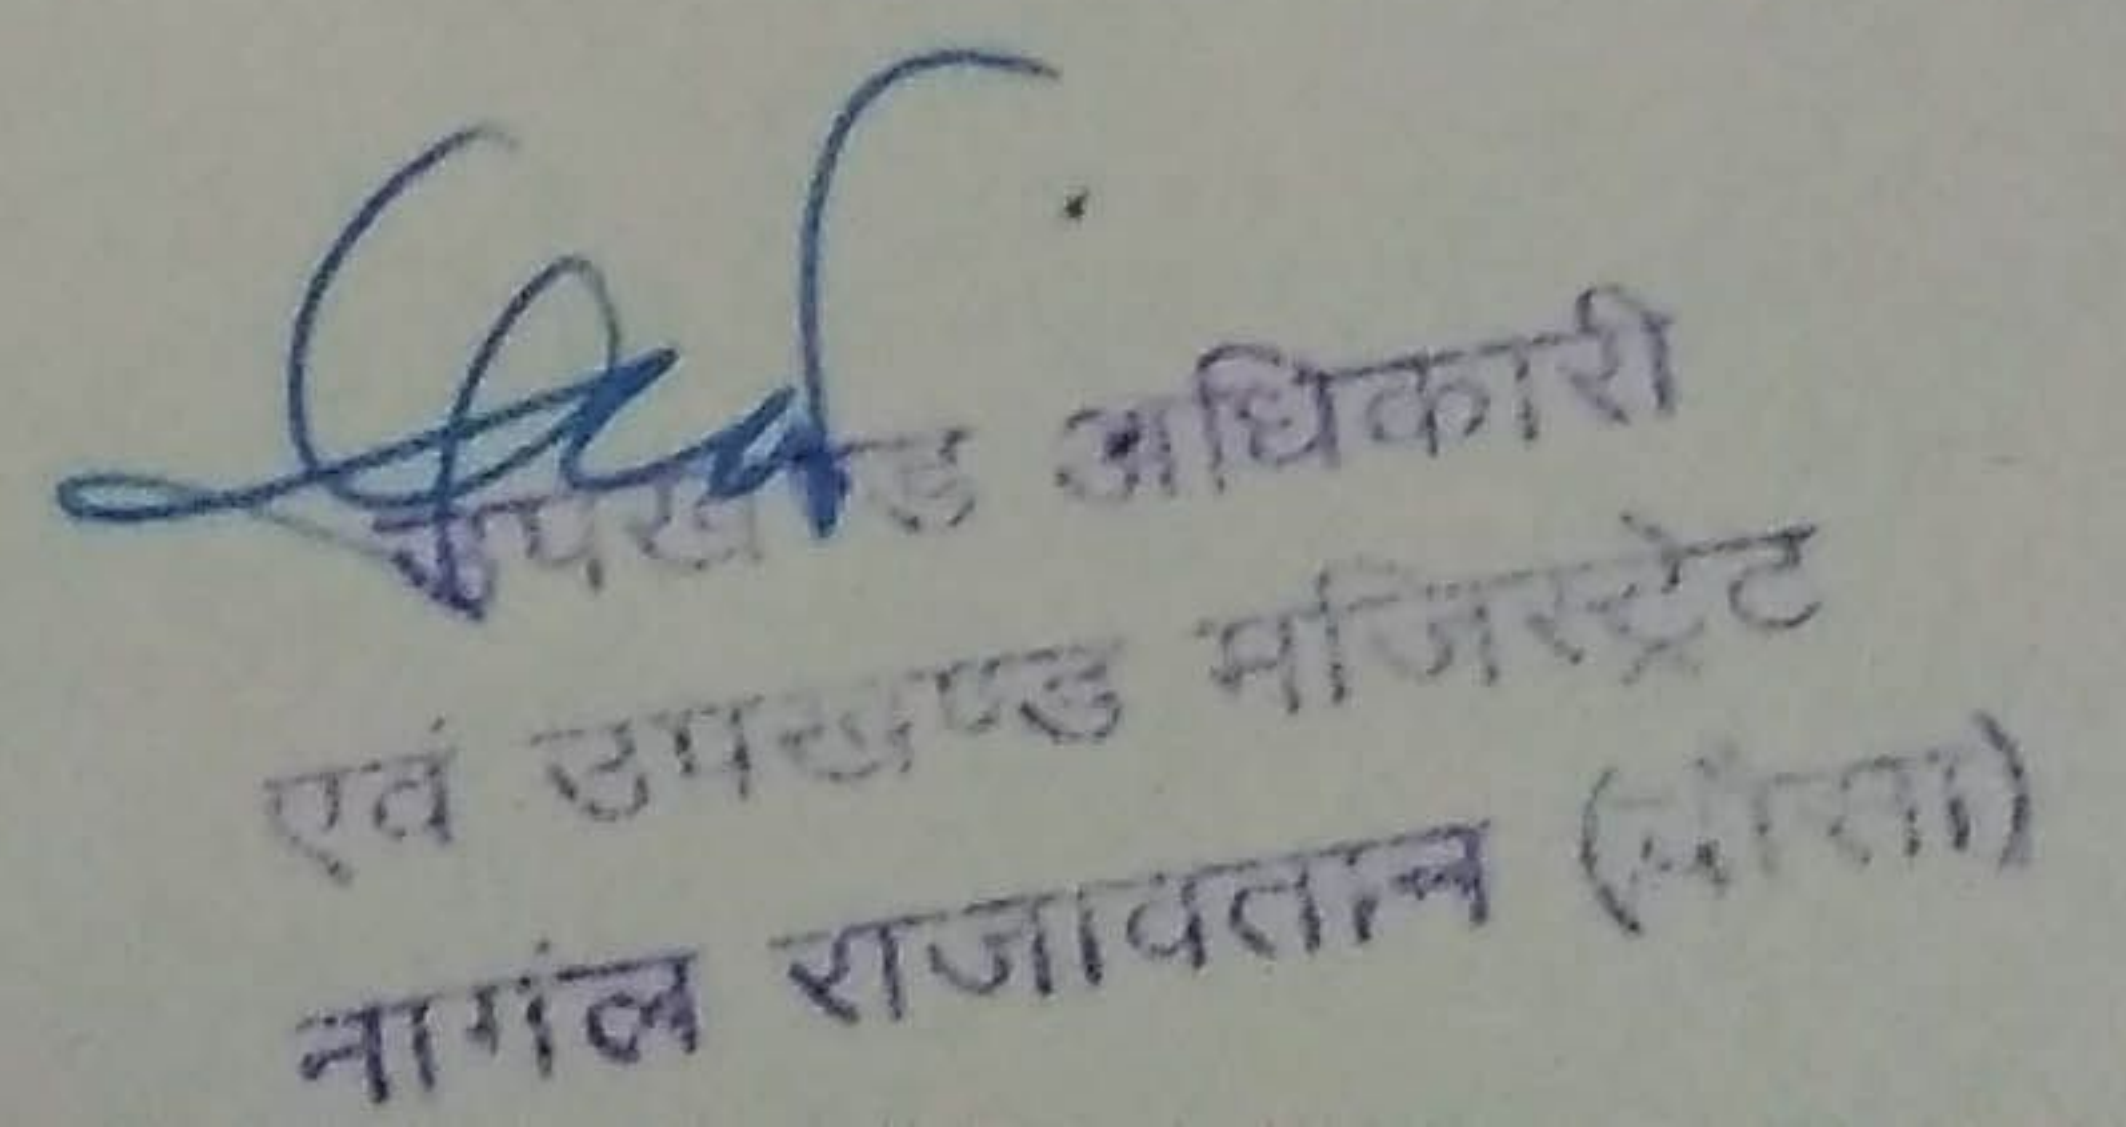 उपखण्ड अधिकारी
एवं उपखण्ड मजिस्ट्रेट
नागंल राजावतान (दौसा)